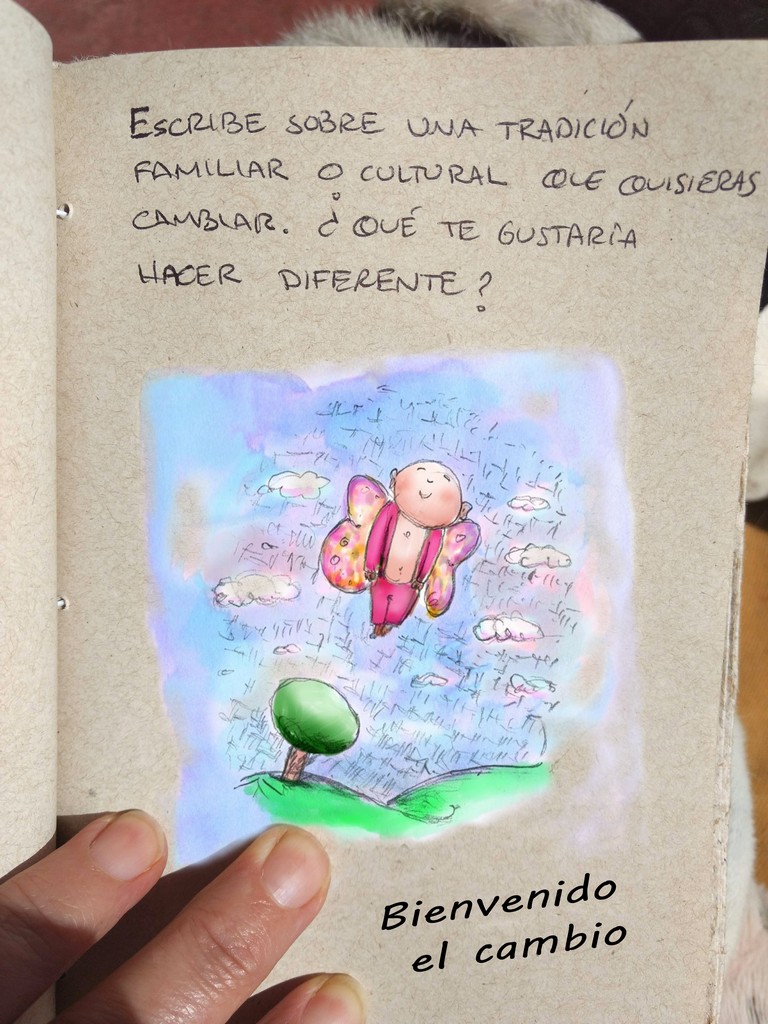 ESCRIBE SOBRE UNA TRADICIÓN
FAMILIAR O CULTURAL QUE QUISIERAS
CAMBIAR. ¿QUÉ TE GUSTARÍA
HACER DIFERENTE?
Bienvenido
el cambio